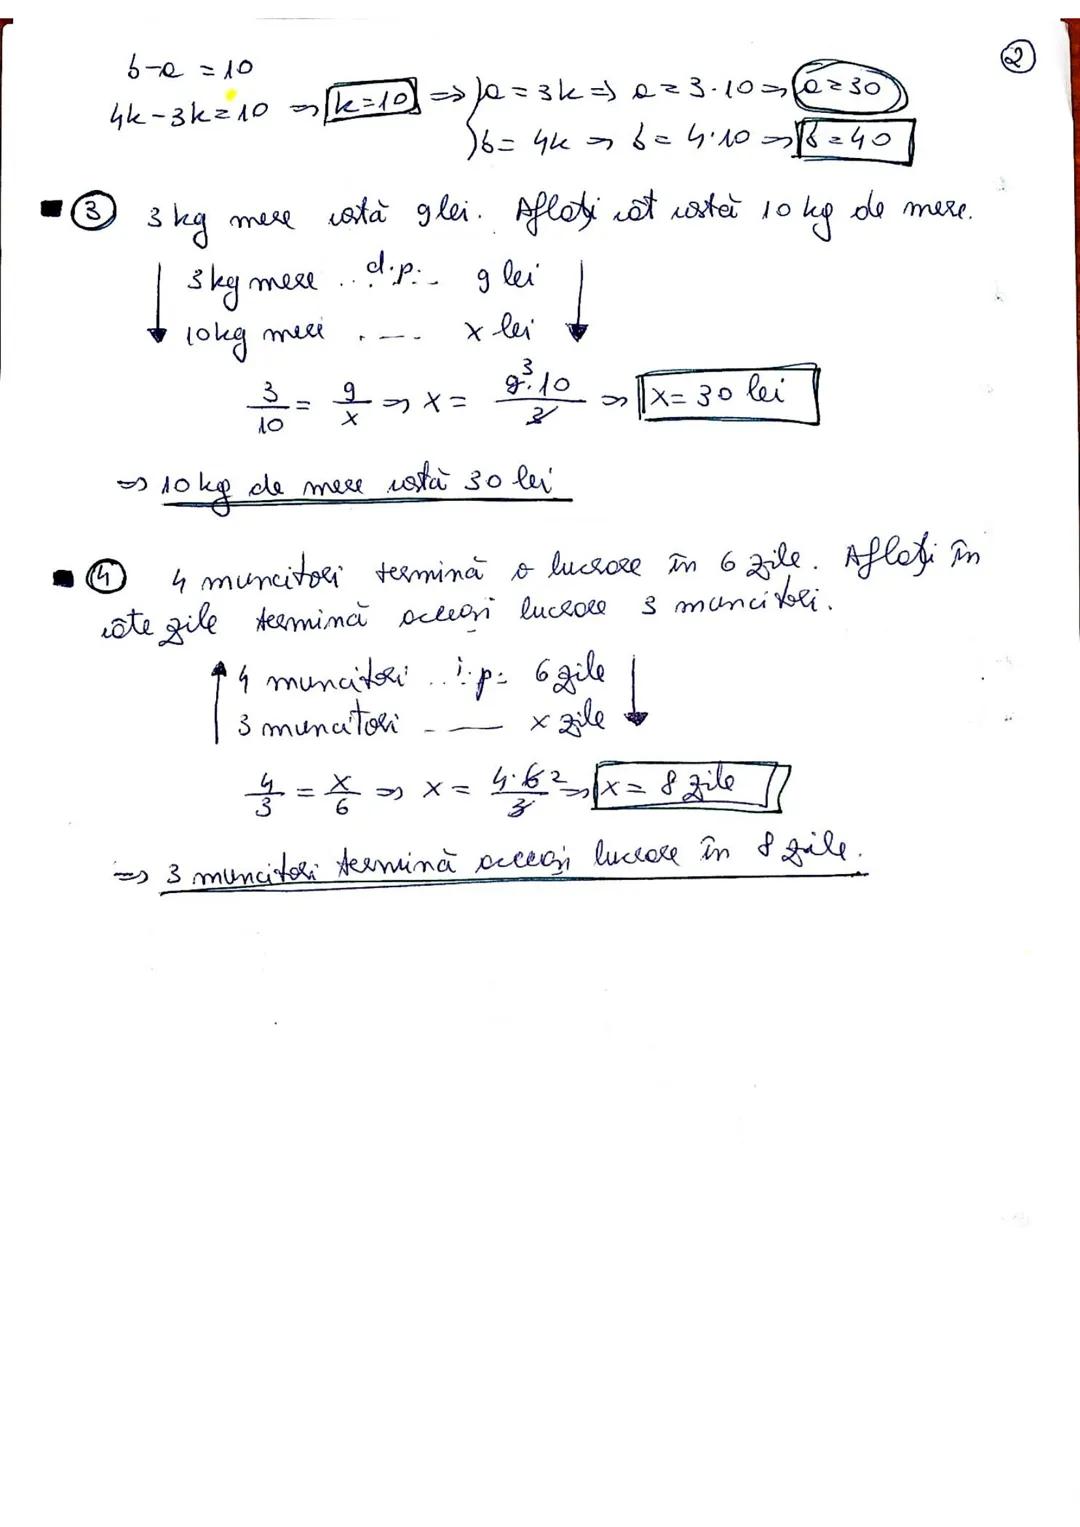 ②
b-a = 10
4k-3k=10 => k=10 => a = 3k => a = 3·10 => a=30
b = 4k => b = 4·10 => b=40
③ 3 kg mere costă 9 lei. Aflați cât costă 10 kg de mere.
3 kg mere .. d.p. .. 9 lei
10 kg mere .--. x lei
3/10 = 9/x => x = 9³·10/3 => x= 30 lei
=> 10 kg de mere costă 30 lei
④ 4 muncitori termină o lucrare în 6 zile. Aflați în
câte zile termină aceeași lucrare 3 muncitori.
4 muncitori .. i.p. 6 zile
3 muncitori -— x zile
4/3 = x/6 => x = 4·6²/3 => x = 8 zile
=> 3 muncitori termină aceeași lucrare în 8 zile.